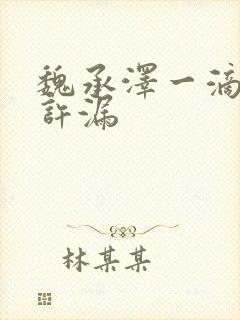 魏承澤一滴
許漏
林某某